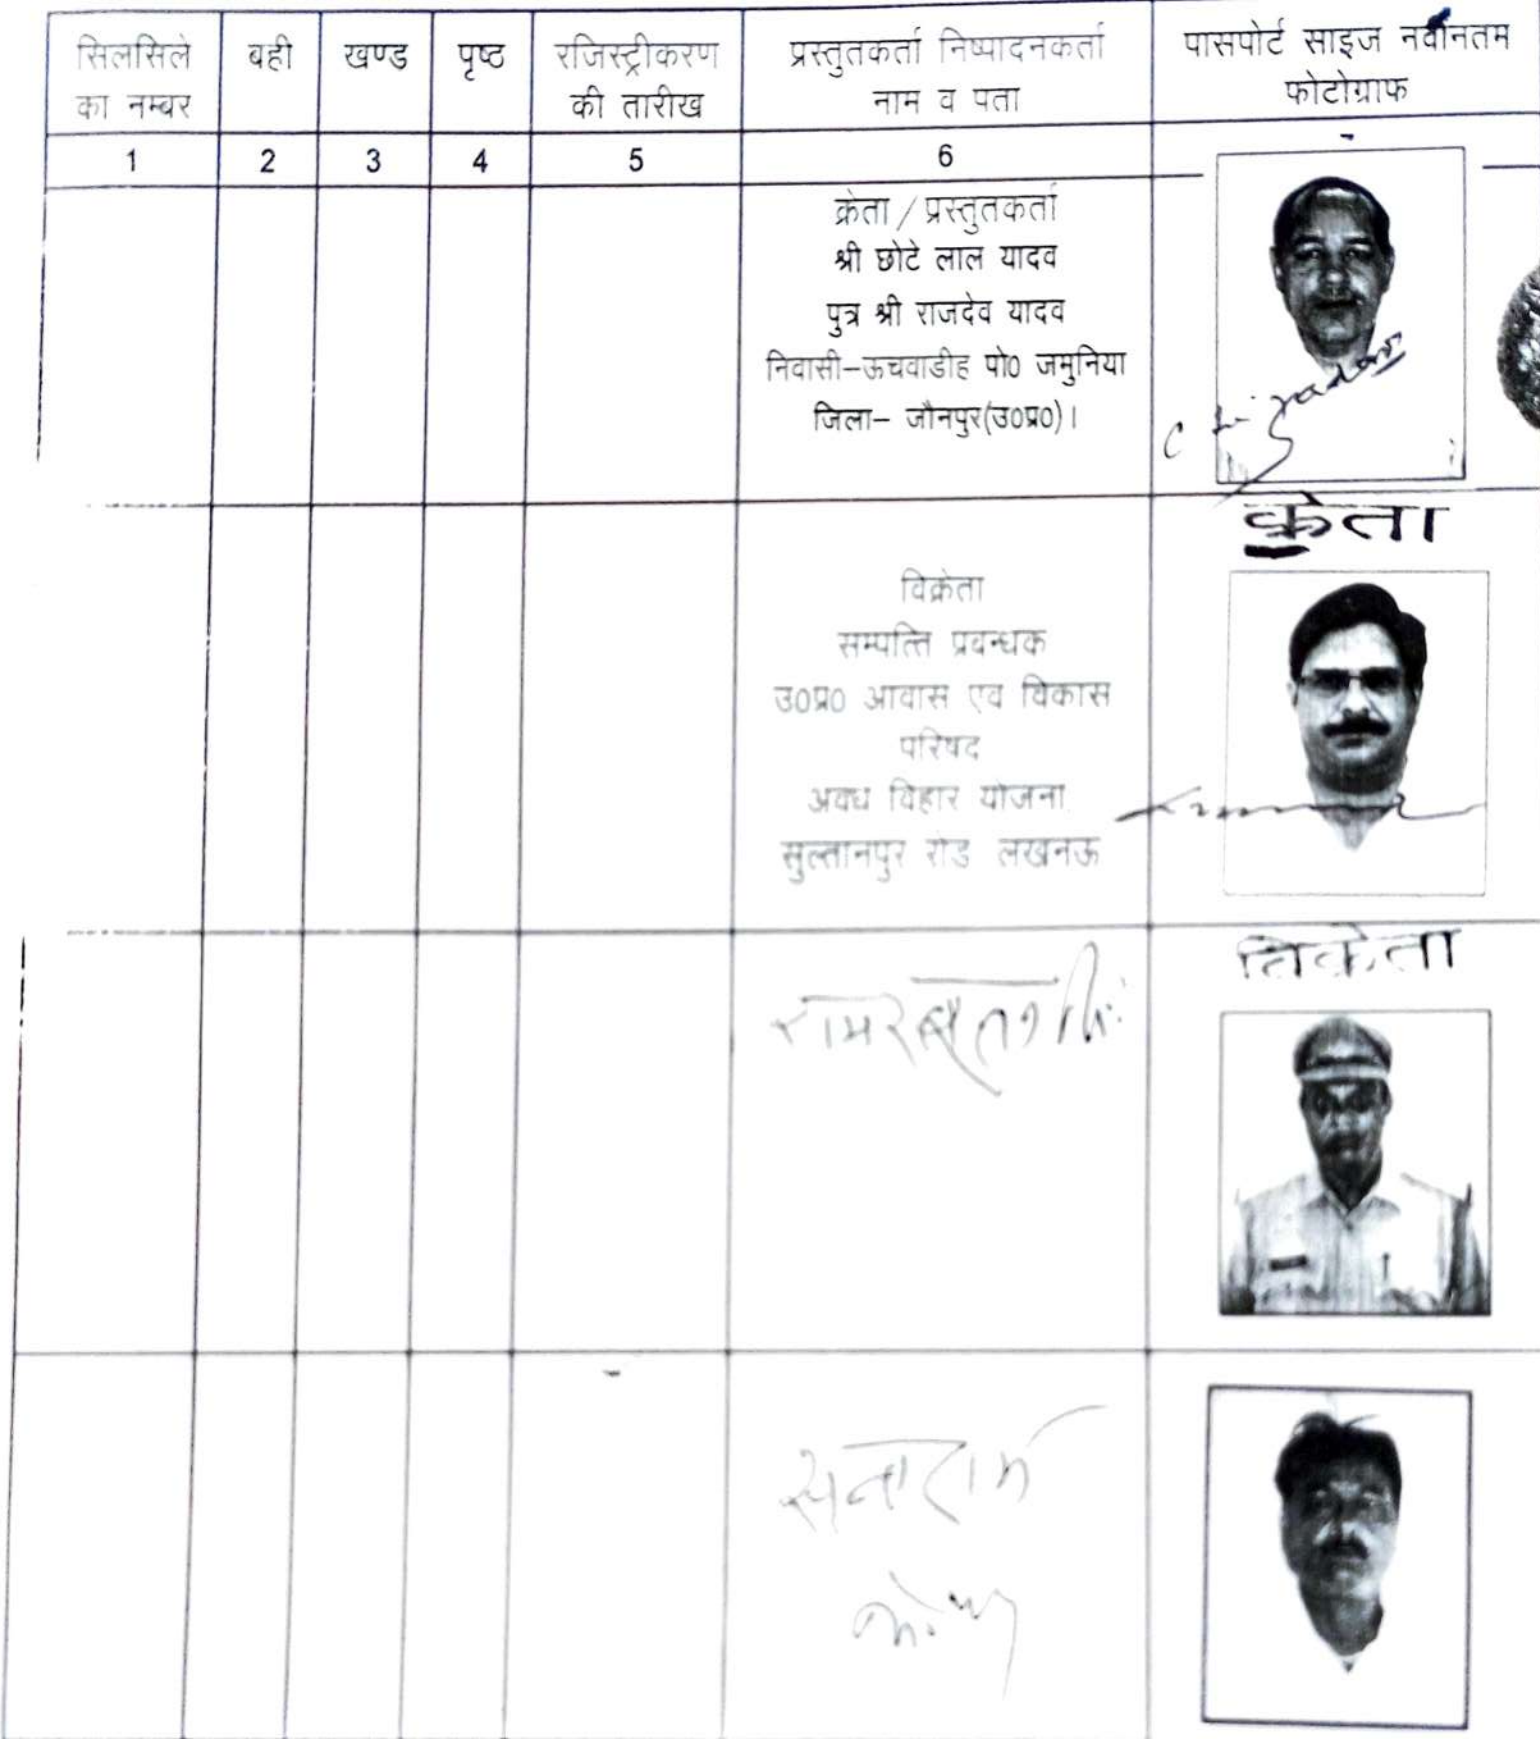 सिलसिले का नम्बर
बही
खण्ड
पृष्ठ
रजिस्ट्रीकरण की तारीख
प्रस्तुतकर्ता निष्पादनकर्ता नाम व पता
पासपोर्ट साइज नवीनतम फोटोग्राफ
1
2
3
4
5
6
क्रेता / प्रस्तुतकर्ता
श्री छोटे लाल यादव
पुत्र श्री राजदेव यादव
निवासी-ऊचवाडीह पो0 जमुनिया
जिला- जौनपुर(उ0प्र0)।
क्रेता
विक्रेता
सम्पत्ति प्रबन्धक
उ0प्र0 आवास एव विकास
परिषद
अवध विहार योजना
सुल्तानपुर रोड लखनऊ
विक्रेता